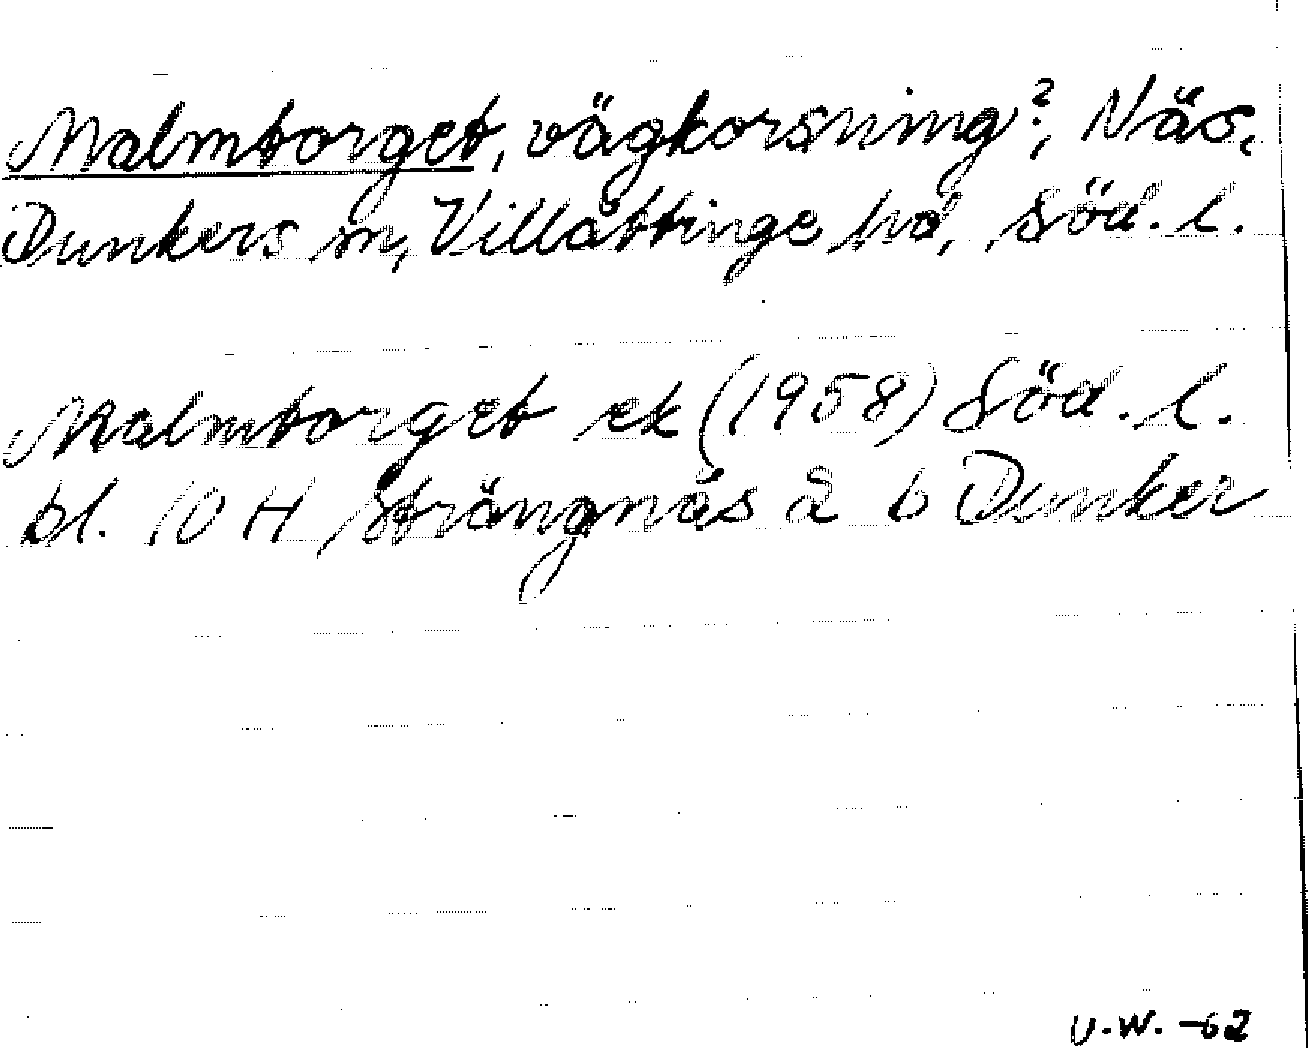 Malmtorget, vägkorsning?, Näs,
Dunkers sn, Villåttinge hd, Söd. l.
Malmtorget ek (1958) Söd. l.
bl. 10 H Strängnäs 2 b Dunker
U.W. -62